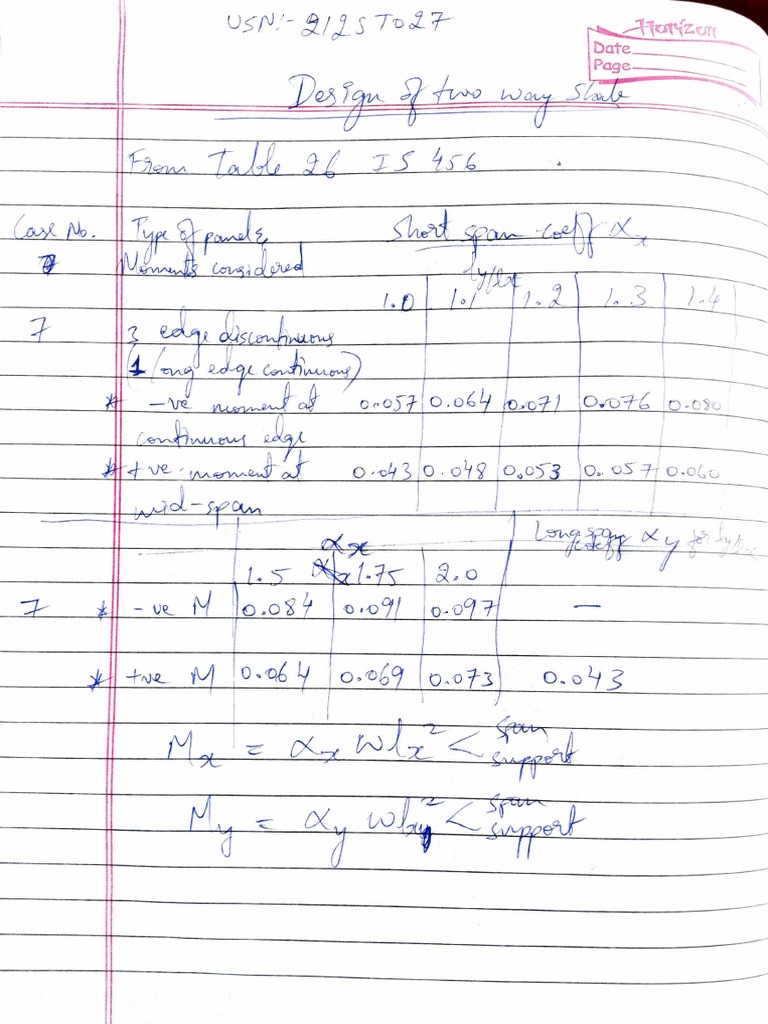 USN:- 212ST027
Horizon
Date
Page
Design of two way slab
From Table 26 IS 456
Case No. Type of panel & Short span coeff αx
Moments considered ly/lx
1.0 1.1 1.2 1.3 1.4
7 3 edge discontinuous
(1 long edge continuous)
* -ve moment at 0.057 0.064 0.071 0.076 0.080
continuous edge
* +ve moment at 0.043 0.048 0.053 0.057 0.060
mid-span
αx Long span coeff αy for
1.5 1.75 2.0
7 * -ve M 0.084 0.091 0.097 —
* +ve M 0.064 0.069 0.073 0.043
Mx = αx wlx² < span support
My = αy wlxy² < span support